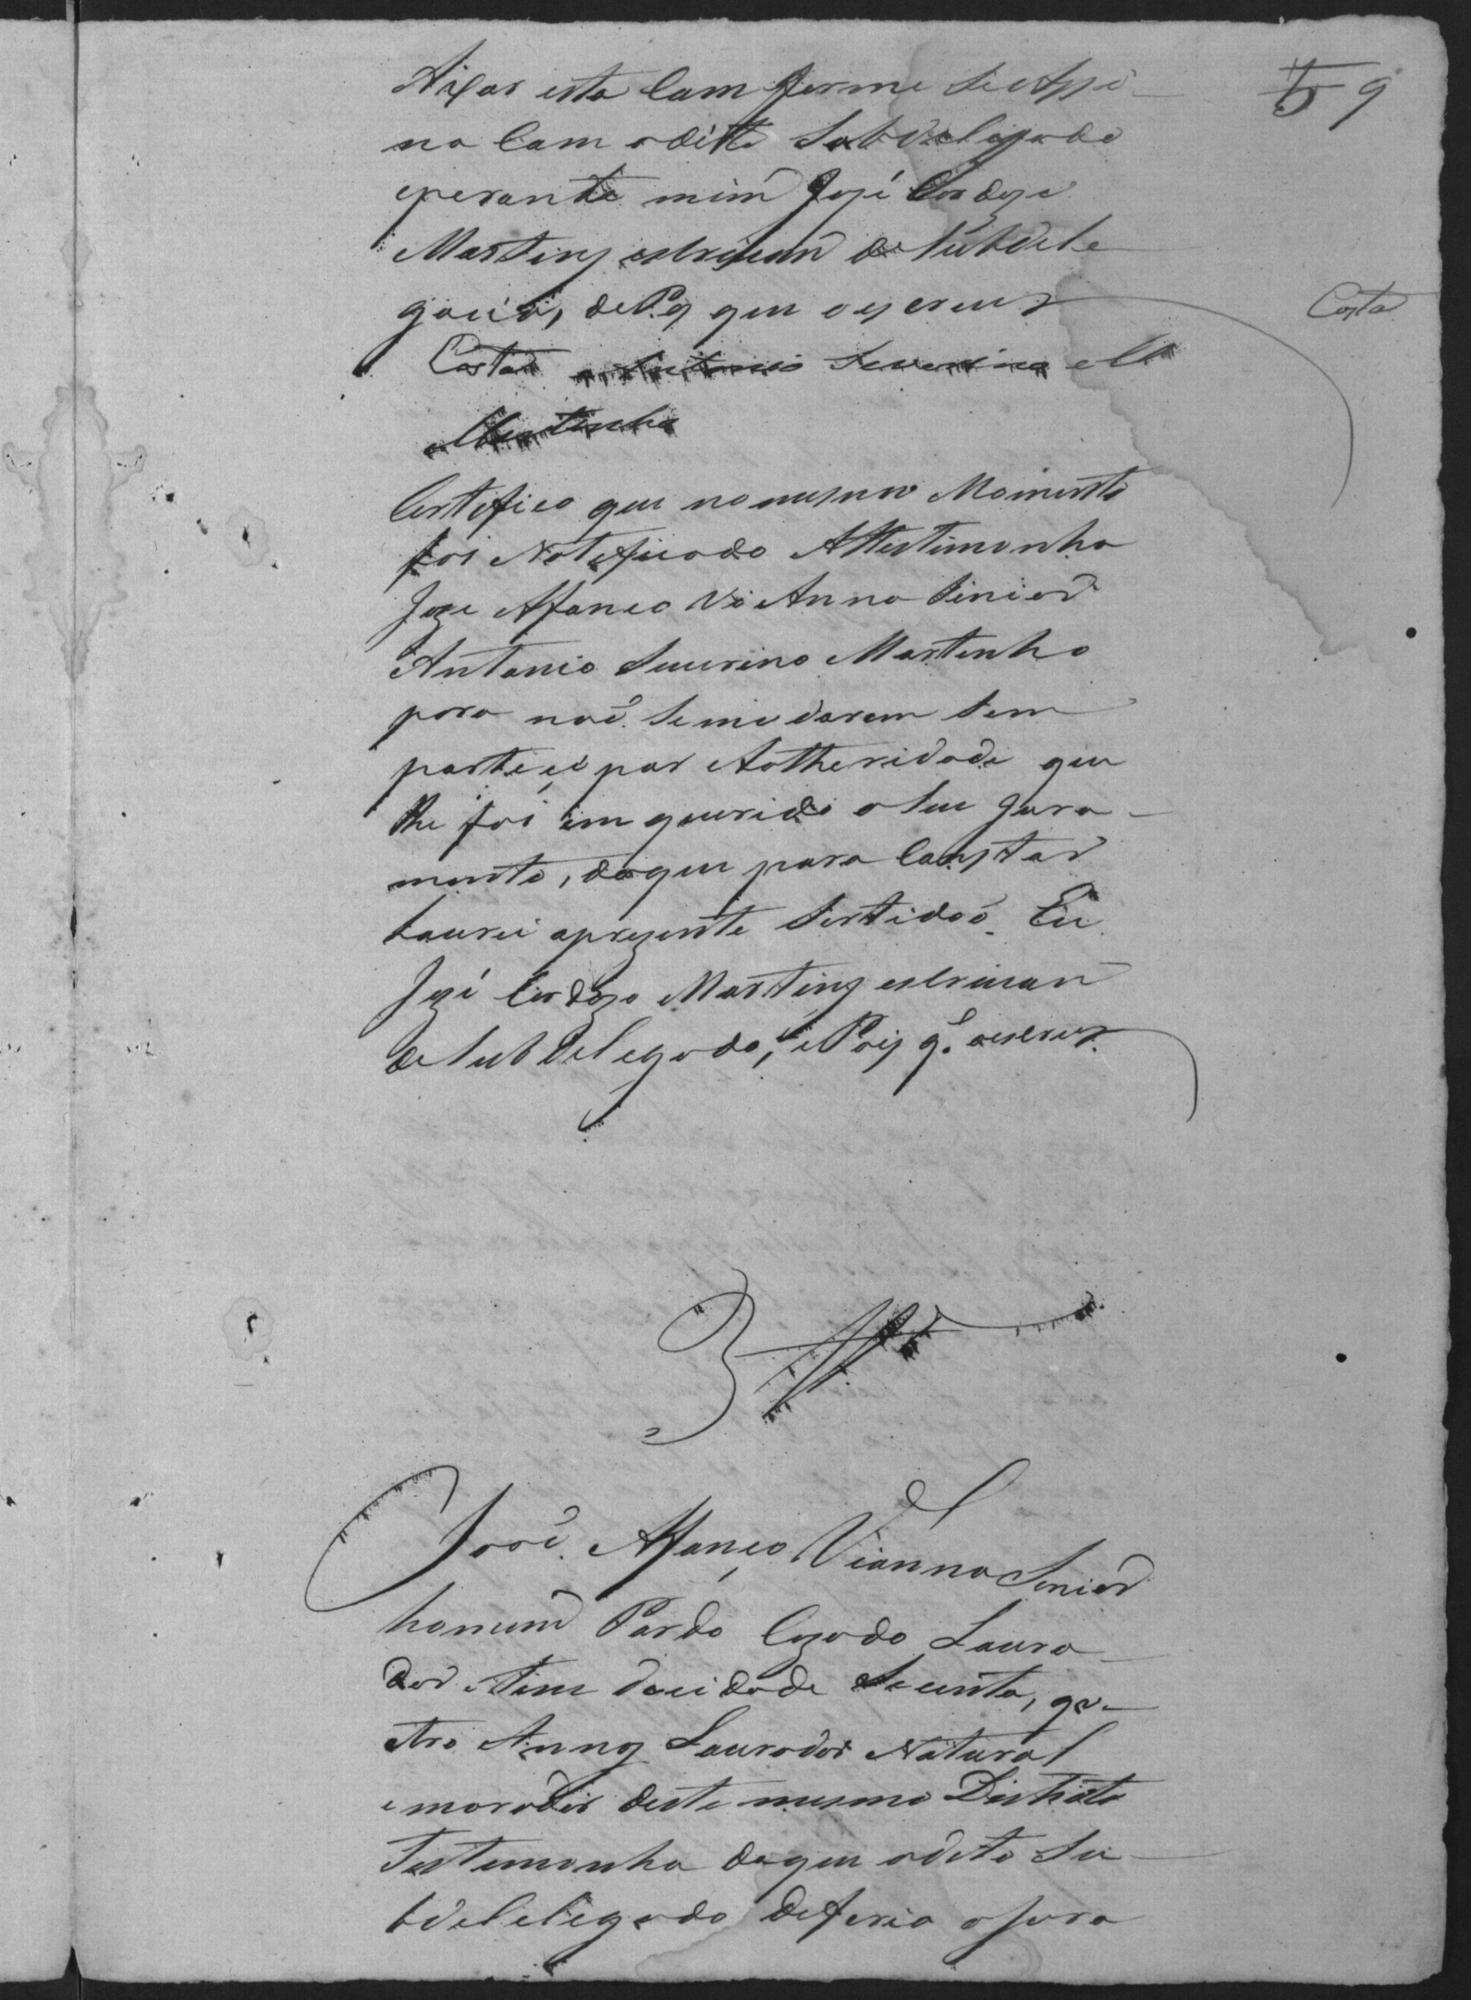 5 9
Axar esta comforme se Assi
na com odito Subdelegado
eperante mim José Cordozo
Martins escrivan de Subdele
gacia, de Pz que o escrevi
Costa
Costa Antonio Severino M
Martinho
Certefico que no mesmo Momento
foi Noteficado Attestimonha
Joze Affonço Vianna Sinior
Antonio Severino Martinho
para naõ se mudarem sem
partecipar Aotheridade que
lhe foi imquerido o seu Jura
mento, doque para constar
Lavrei aprezente Sertidaõ. Eu
José Cordozo Martins escrivan
de Subdelegado, e Paz q. oescrevi
3ª T
José Affonço Vianna Senior
homem Pardo Cazado Lavra
dor e tem de cidade Secenta, qua
tro Annos Lavrador Natural
emorador deste mesmo Distrito
Testemonha de quem odito Su
bdelelegado deferio o Jura